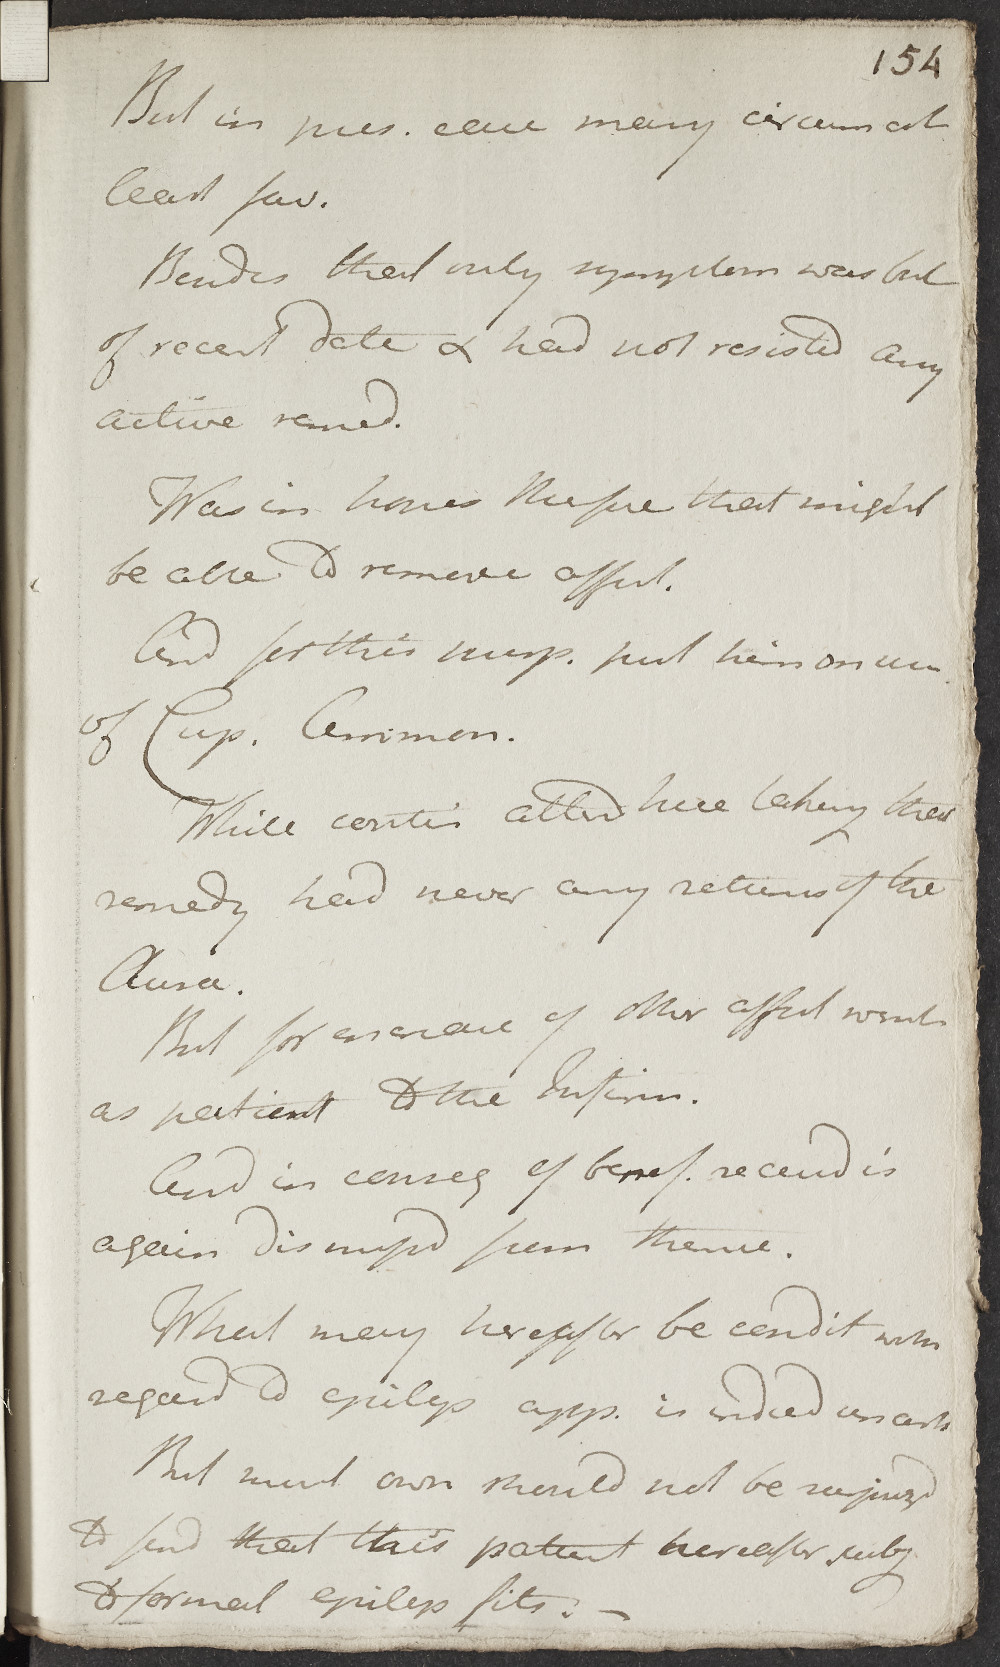 154
But in pres. case many circumst
least fav.
Besides that only symptom was but
of recent date & had not resisted any
active remed.
Was in hopes therfore that might
be able to remove affect.
And for this purp. put him on use
of Cup. Ammon.
While contin attend here taking that
remedy had never any returns of the
Aura.
But for increase of other affect went
as patient to the Infirm.
And in conseq of benef. receivd is
again dismissd from thence.
What may hereafter be condit with
regard to epilep app. is indeed uncert
But must own should not be surprizd
to find that this patient hereafter subj
to formal epilep fits. —